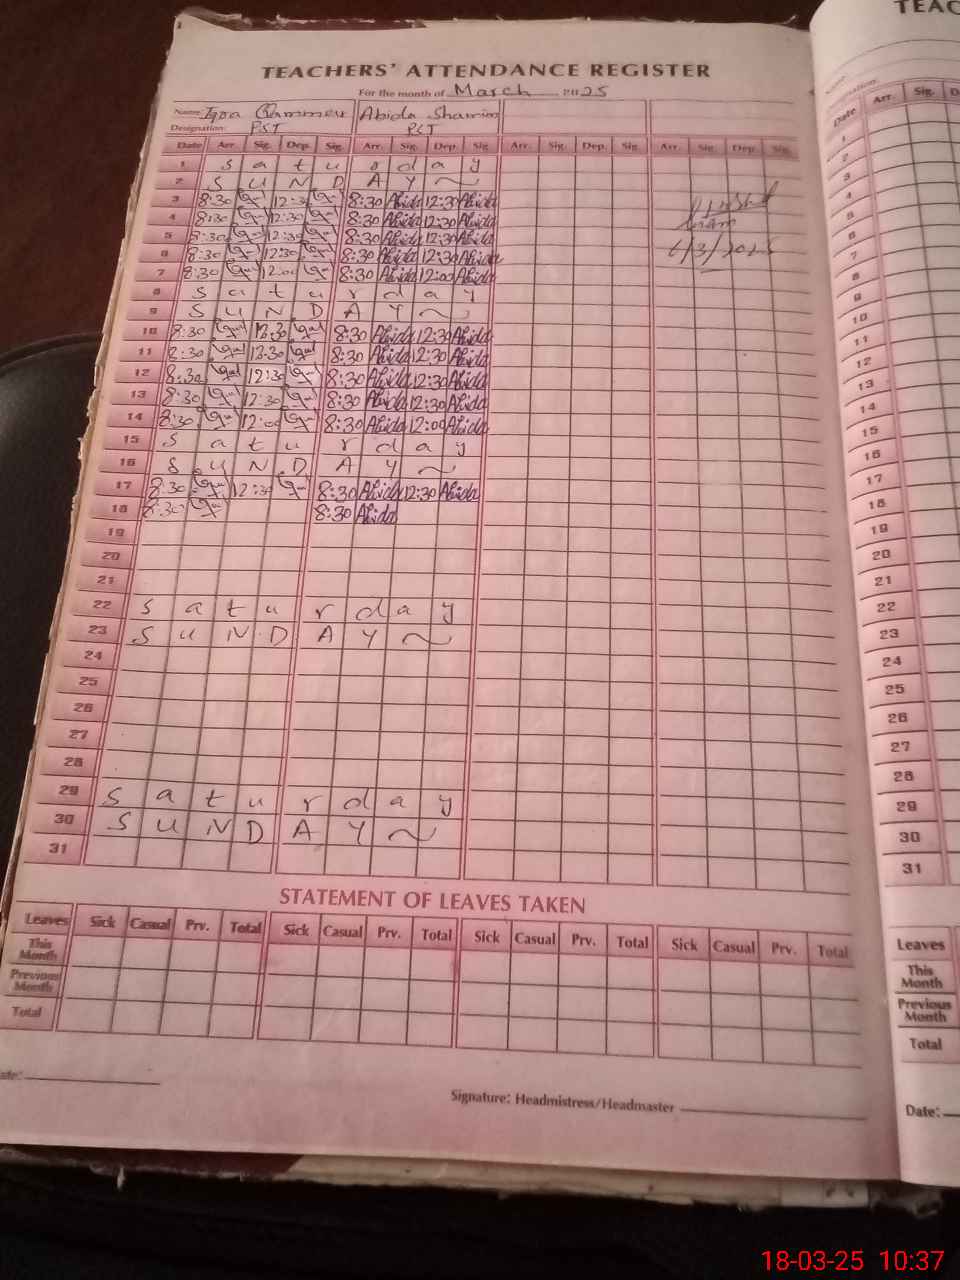 TEACHERS' ATTENDANCE REGISTER
For the month of March 2025
Name: Iqra Abida Shamim
Designation: PST PST
Date Arr. Sig. Dep. Sig. Arr. Sig. Dep. Sig. Arr. Sig. Dep. Sig. Arr. Sig. Dep. Sig.
1 s a t u r d a y
2 S U N D A Y
3 8:30 12:30 8:30 Abida 12:30 Abida
4 8:30 12:30 8:30 Abida 12:30 Abida
5 8:30 12:30 8:30 Abida 12:30 Abida
6 8:30 12:30 8:30 Abida 12:30 Abida
6/3/2025
7 8:30 12:00 8:30 Abida 12:00 Abida
8 s a t u r d a y
9 S U N D A Y
10 8:30 12:30 8:30 Abida 12:30 Abida
11 8:30 12:30 8:30 Abida 12:30 Abida
12 8:30 12:30 8:30 Abida 12:30 Abida
13 8:30 12:30 8:30 Abida 12:30 Abida
14 8:30 12:00 8:30 Abida 12:00 Abida
15 s a t u r d a y
16 S U N D A Y
17 8:30 12:30 8:30 Abida 12:30 Abida
18 8:30 8:30 Abida
19
20
21
22 s a t u r d a y
23 S U N D A Y
24
25
26
27
28
29 s a t u r d a y
30 S U N D A Y
31
STATEMENT OF LEAVES TAKEN
Leaves Sick Casual Prv. Total Sick Casual Prv. Total Sick Casual Prv. Total Sick Casual Prv. Total
This Month
Previous Month
Total
Signature: Headmistress/Headmaster
TEAC
Date Arr. Sig.
1
2
3
4
5
6
7
8
9
10
11
12
13
14
15
16
17
18
19
20
21
22
23
24
25
26
27
28
29
30
31
Leaves
This Month
Previous Month
Total
Date:
18-03-25 10:37